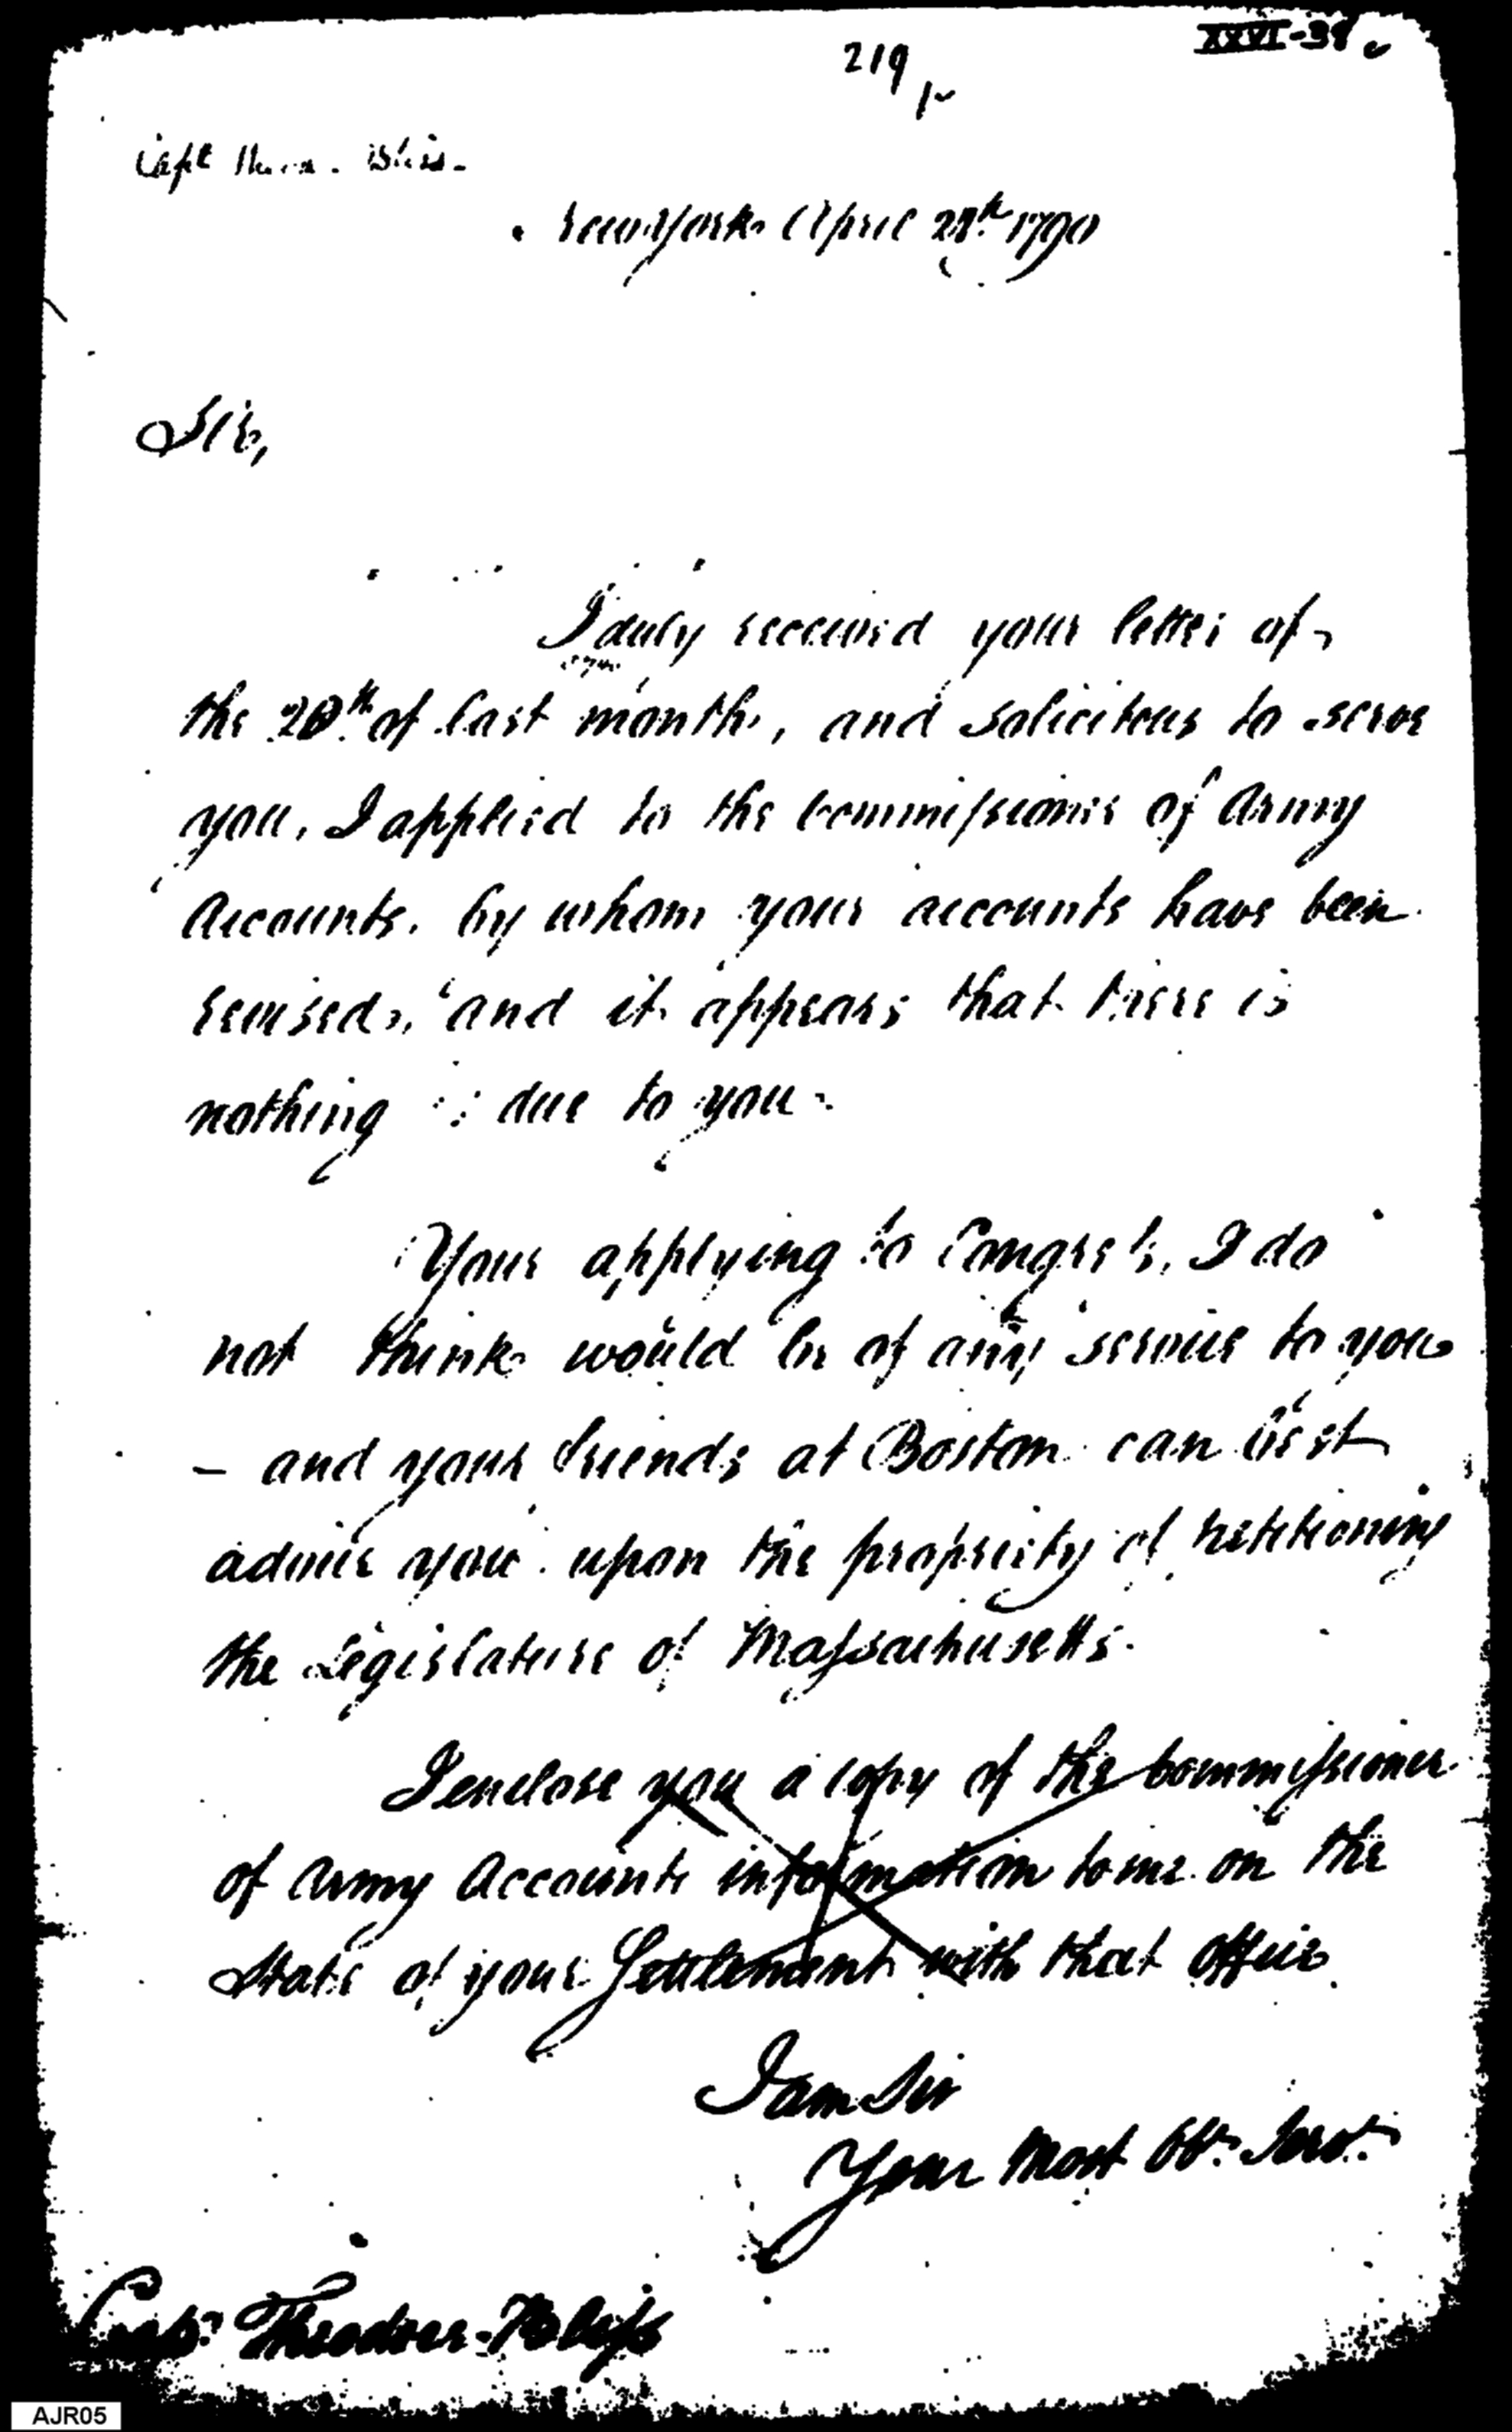 XXVI-39
219
Capt Theo. Bliss-
New York April 28th 1790
Sir,
I duly received your letter of
the 20th of last month, and solicitous to serve
you, I applied to the Commissioner of Army
Accounts, by whom your accounts have been
revised, and it appears that there is
nothing due to you.
Your applying to Congress, I do
not think would be of any service to you
- and your friends at Boston can best
advise you upon the propriety of petitioning
the Legislature of Massachusetts.
I enclose you a copy of the Commissioner
of Army Accounts information to me on the
State of your Settlement with that office.
I am Sir
Your Most Obt. Servt.
Capt. Theodore Bliss
AJR05